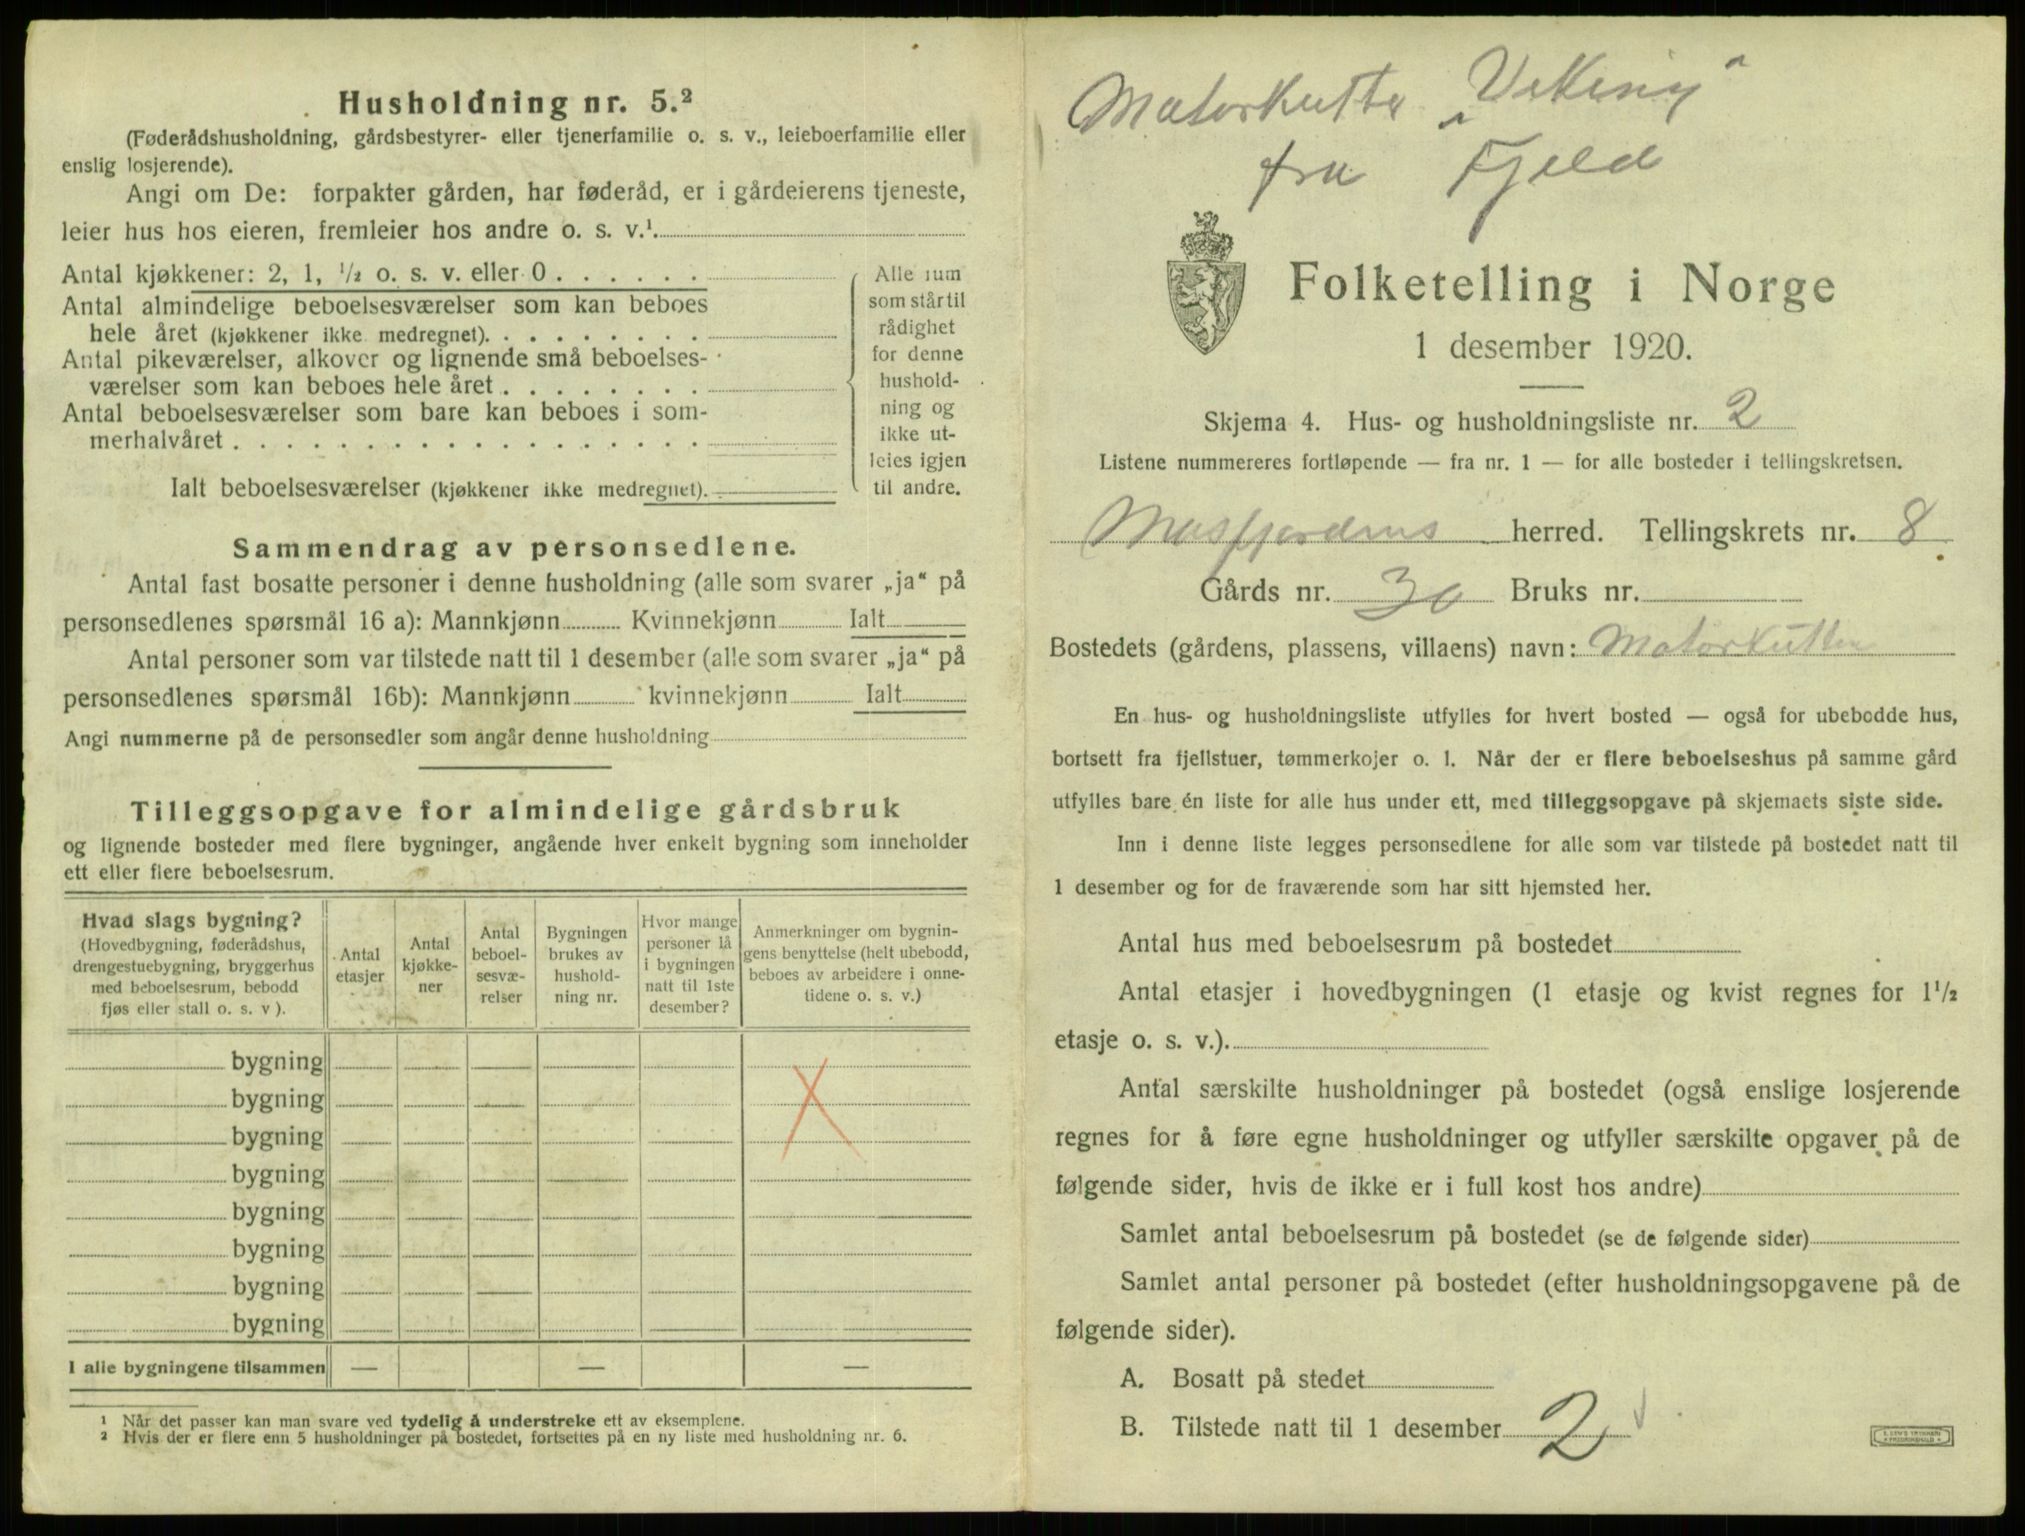 Husholdning nr. 5.²
(Føderådshusholdning, gårdsbestyrer- eller tjenerfamilie o. s. v., leieboerfamilie eller
enslig losjerende).
Angi om De: forpakter gården, har føderåd, er i gårdeierens tjeneste,
leier hus hos eieren, fremleier hos andre o. s. v.¹.
Antal kjøkkener: 2, 1, ½ o. s. v. eller 0 . . . . . .
Antal almindelige beboelsesværelser som kan beboes
hele året (kjøkkener ikke medregnet). . . . . . . . .
Antal pikeværelser, alkover og lignende små beboelses-
værelser som kan beboes hele året . . . . . . . .
Antal beboelsesværelser som bare kan beboes i som-
merhalvåret . . . . . . . . . . . . . . . . . .
Ialt beboelsesværelser (kjøkkener ikke medregnet).
Alle rum
som står til
rådighet
for denne
hushold-
ning og
ikke ut-
leies igjen
til andre.
Sammendrag av personsedlene.
Antal fast bosatte personer i denne husholdning (alle som svarer „ja“ på
personsedlenes spørsmål 16 a): Mannkjønn Kvinnekjønn Ialt
Antal personer som var tilstede natt til 1 desember (alle som svarer „ja“ på
personsedlenes spørsmål 16b): Mannkjønn kvinnekjønn Ialt
Angi nummerne på de personsedler som angår denne husholdning
Tilleggsopgave for almindelige gårdsbruk
og lignende bosteder med flere bygninger, angående hver enkelt bygning som inneholder
ett eller flere beboelsesrum.
Hvad slags bygning?
(Hovedbygning, føderådshus,
drengestuebygning, bryggerhus
med beboelsesrum, bebodd
fjøs eller stall o. s. v ).
Antal
etasjer
Antal
kjøkke-
ner
Antal
beboel-
sesvæ-
relser
Bygningen
brukes av
hushold-
ning nr.
Hvor mange
personer lå
i bygningen
natt til 1ste
desember?
Anmerkninger om bygnin-
gens benyttelse (helt ubebodd,
beboes av arbeidere i onne-
tidene o. s. v.)
bygning
bygning
bygning
bygning
bygning
bygning
bygning
bygning
I alle bygningene tilsammen — — —
¹ Når det passer kan man svare ved tydelig å understreke ett av eksemplene.
² Hvis der er flere enn 5 husholdninger på bostedet, fortsettes på en ny liste med husholdning nr. 6.
Motorkutter „Viking“
fra Fjeld
Folketelling i Norge
1 desember 1920.
Skjema 4. Hus- og husholdningsliste nr. 2
Listene nummereres fortløpende — fra nr. 1 — for alle bosteder i tellingskretsen.
Masfjordens herred. Tellingskrets nr. 8
Gårds nr. 30 Bruks nr.
Bostedets (gårdens, plassens, villaens) navn: Motorkutter
En hus- og husholdningsliste utfylles for hvert bosted — også for ubebodde hus,
bortsett fra fjellstuer, tømmerkojer o. l. Når der er flere beboelseshus på samme gård
utfylles bare én liste for alle hus under ett, med tilleggsopgave på skjemaets siste side.
Inn i denne liste legges personsedlene for alle som var tilstede på bostedet natt til
1 desember og for de fraværende som har sitt hjemsted her.
Antal hus med beboelsesrum på bostedet
Antal etasjer i hovedbygningen (1 etasje og kvist regnes for 1½
etasje o. s. v.).
Antal særskilte husholdninger på bostedet (også enslige losjerende
regnes for å føre egne husholdninger og utfyller særskilte opgaver på de
følgende sider, hvis de ikke er i full kost hos andre)
Samlet antal beboelsesrum på bostedet (se de følgende sider)
Samlet antal personer på bostedet (efter husholdningsopgavene på de
følgende sider).
A. Bosatt på stedet
B. Tilstede natt til 1 desember 2